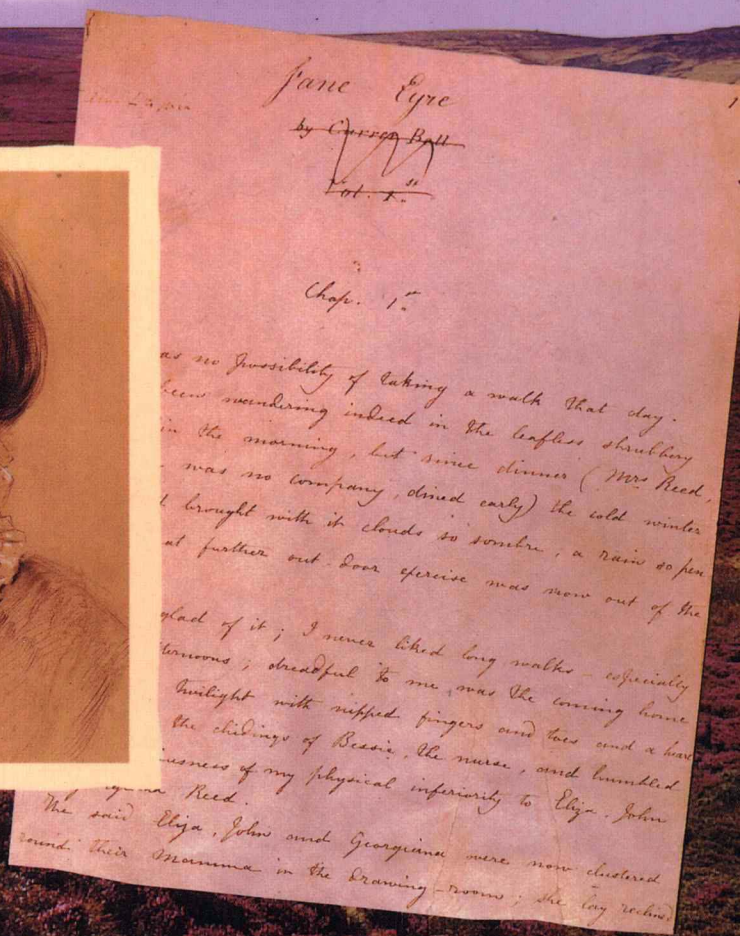 1
Jane Eyre
by Currer Bell
Vol. 1.st
Chap. 1st
as no possibility of taking a walk that day.
been wandering indeed in the leafless shrubbery
in the morning, but since dinner (Mrs Reed,
was no company, dined early) the cold winter
brought with it clouds so sombre, a rain so pen
at further out-door exercise was now out of the
glad of it; I never liked long walks - especially
ternoons; dreadful to me was the coming home
twilight with nipped fingers and toes and a heart
the chidings of Bessie, the nurse, and humbled
iusness of my physical inferiority to Eliza, John
Reed.
The said Eliza, John and Georgiana were now clustered
round their Mamma in the drawing-room; she lay reclined